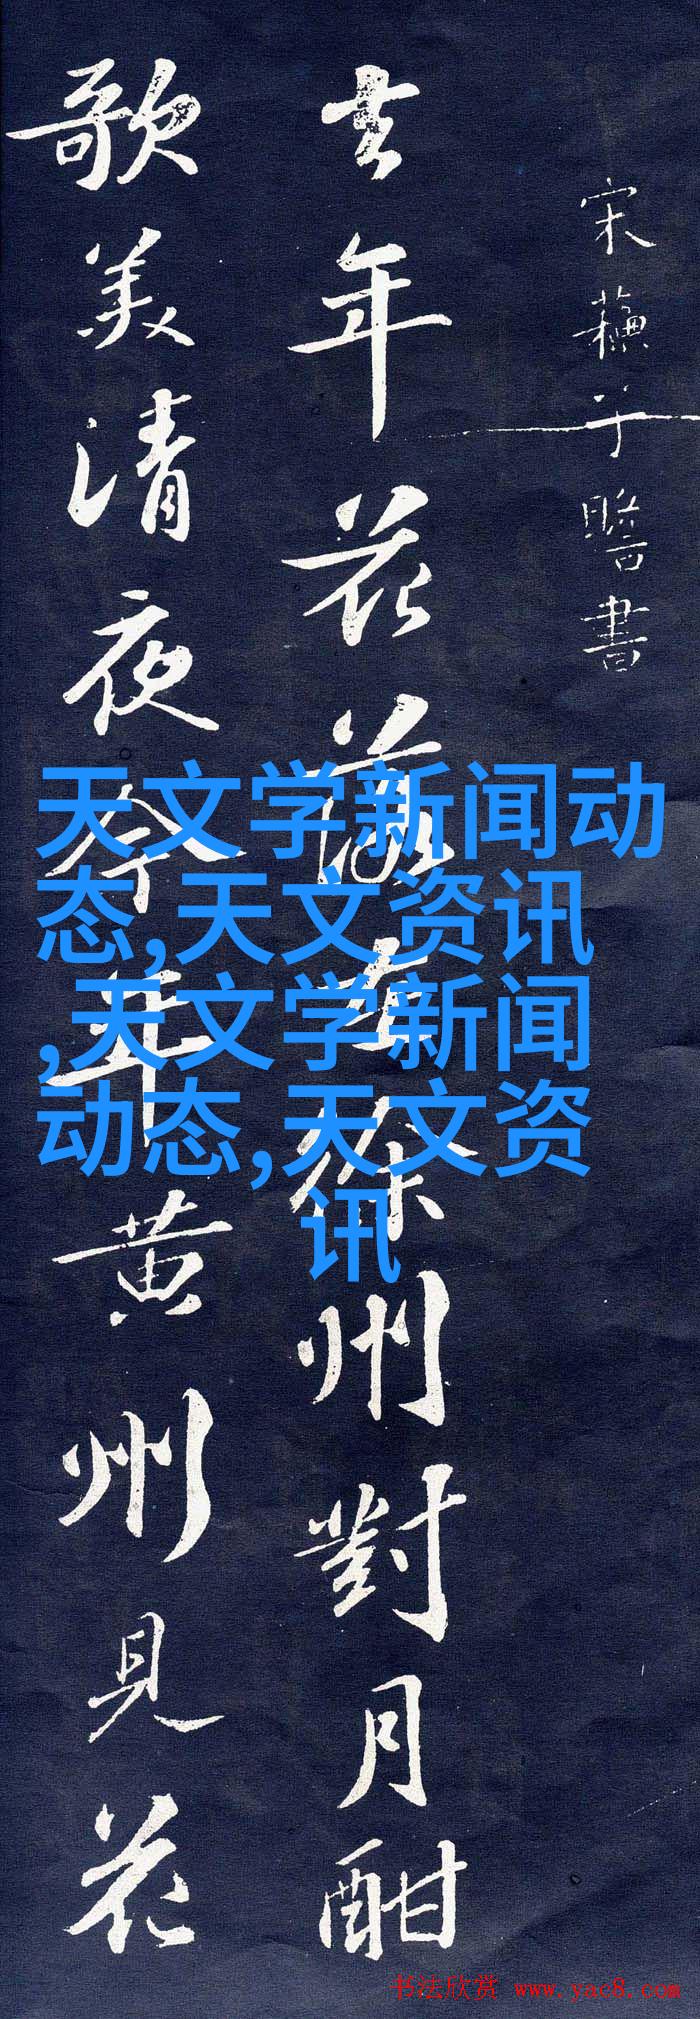 宋蘇子瞻書
去年花落在徐州對月酣
歌美清夜今年黄州見花
天文学新闻动
态,天文资讯
,天文学新闻
动态,天文资
讯
书法欣赏 www.yac8.com